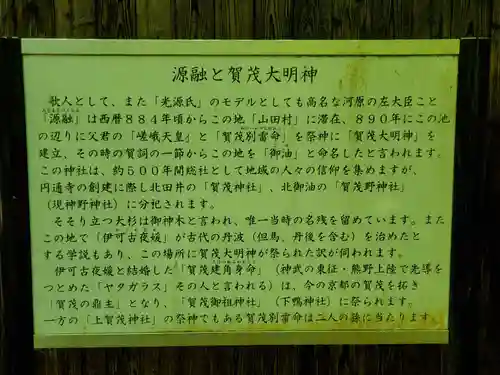 源融と賀茂大明神
歌人として、また「光源氏」のモデルとしても高名な河原の左大臣こと
「源融」は西暦884年頃からこの地「山田村」に滞在、890年にこの池
の辺りに父君の「嵯峨天皇」と「賀茂別雷命」を祭神に「賀茂大明神」を
建立、その時の賀詞の一節からこの地を「御油」と命名したと言われます。
この神社は、約500年間総社として地域の人々の信仰を集めますが、
円通寺の創建に際し北田井の「賀茂神社」、北御油の「賀茂野神社」
（現神野神社）に分祀されます。
そそり立つ大杉は御神木と言われ、唯一当時の名残を留めています。また
この地で「伊可古夜媛」が古代の丹波（但馬、丹後を含む）を治めたと
する学説もあり、この場所に賀茂大明神が祭られた訳が伺われます。
伊可古夜媛と結婚した「賀茂建角身命」（神武の東征・熊野上陸で先導を
つとめた「ヤタガラス」その人と言われる）は、今の京都の賀茂を拓き
「賀茂の鼎主」となり、「賀茂御祖神社」（下鴨神社）に祭られます。
一方の「上賀茂神社」の祭神でもある賀茂別雷命は二人の孫に当たります。